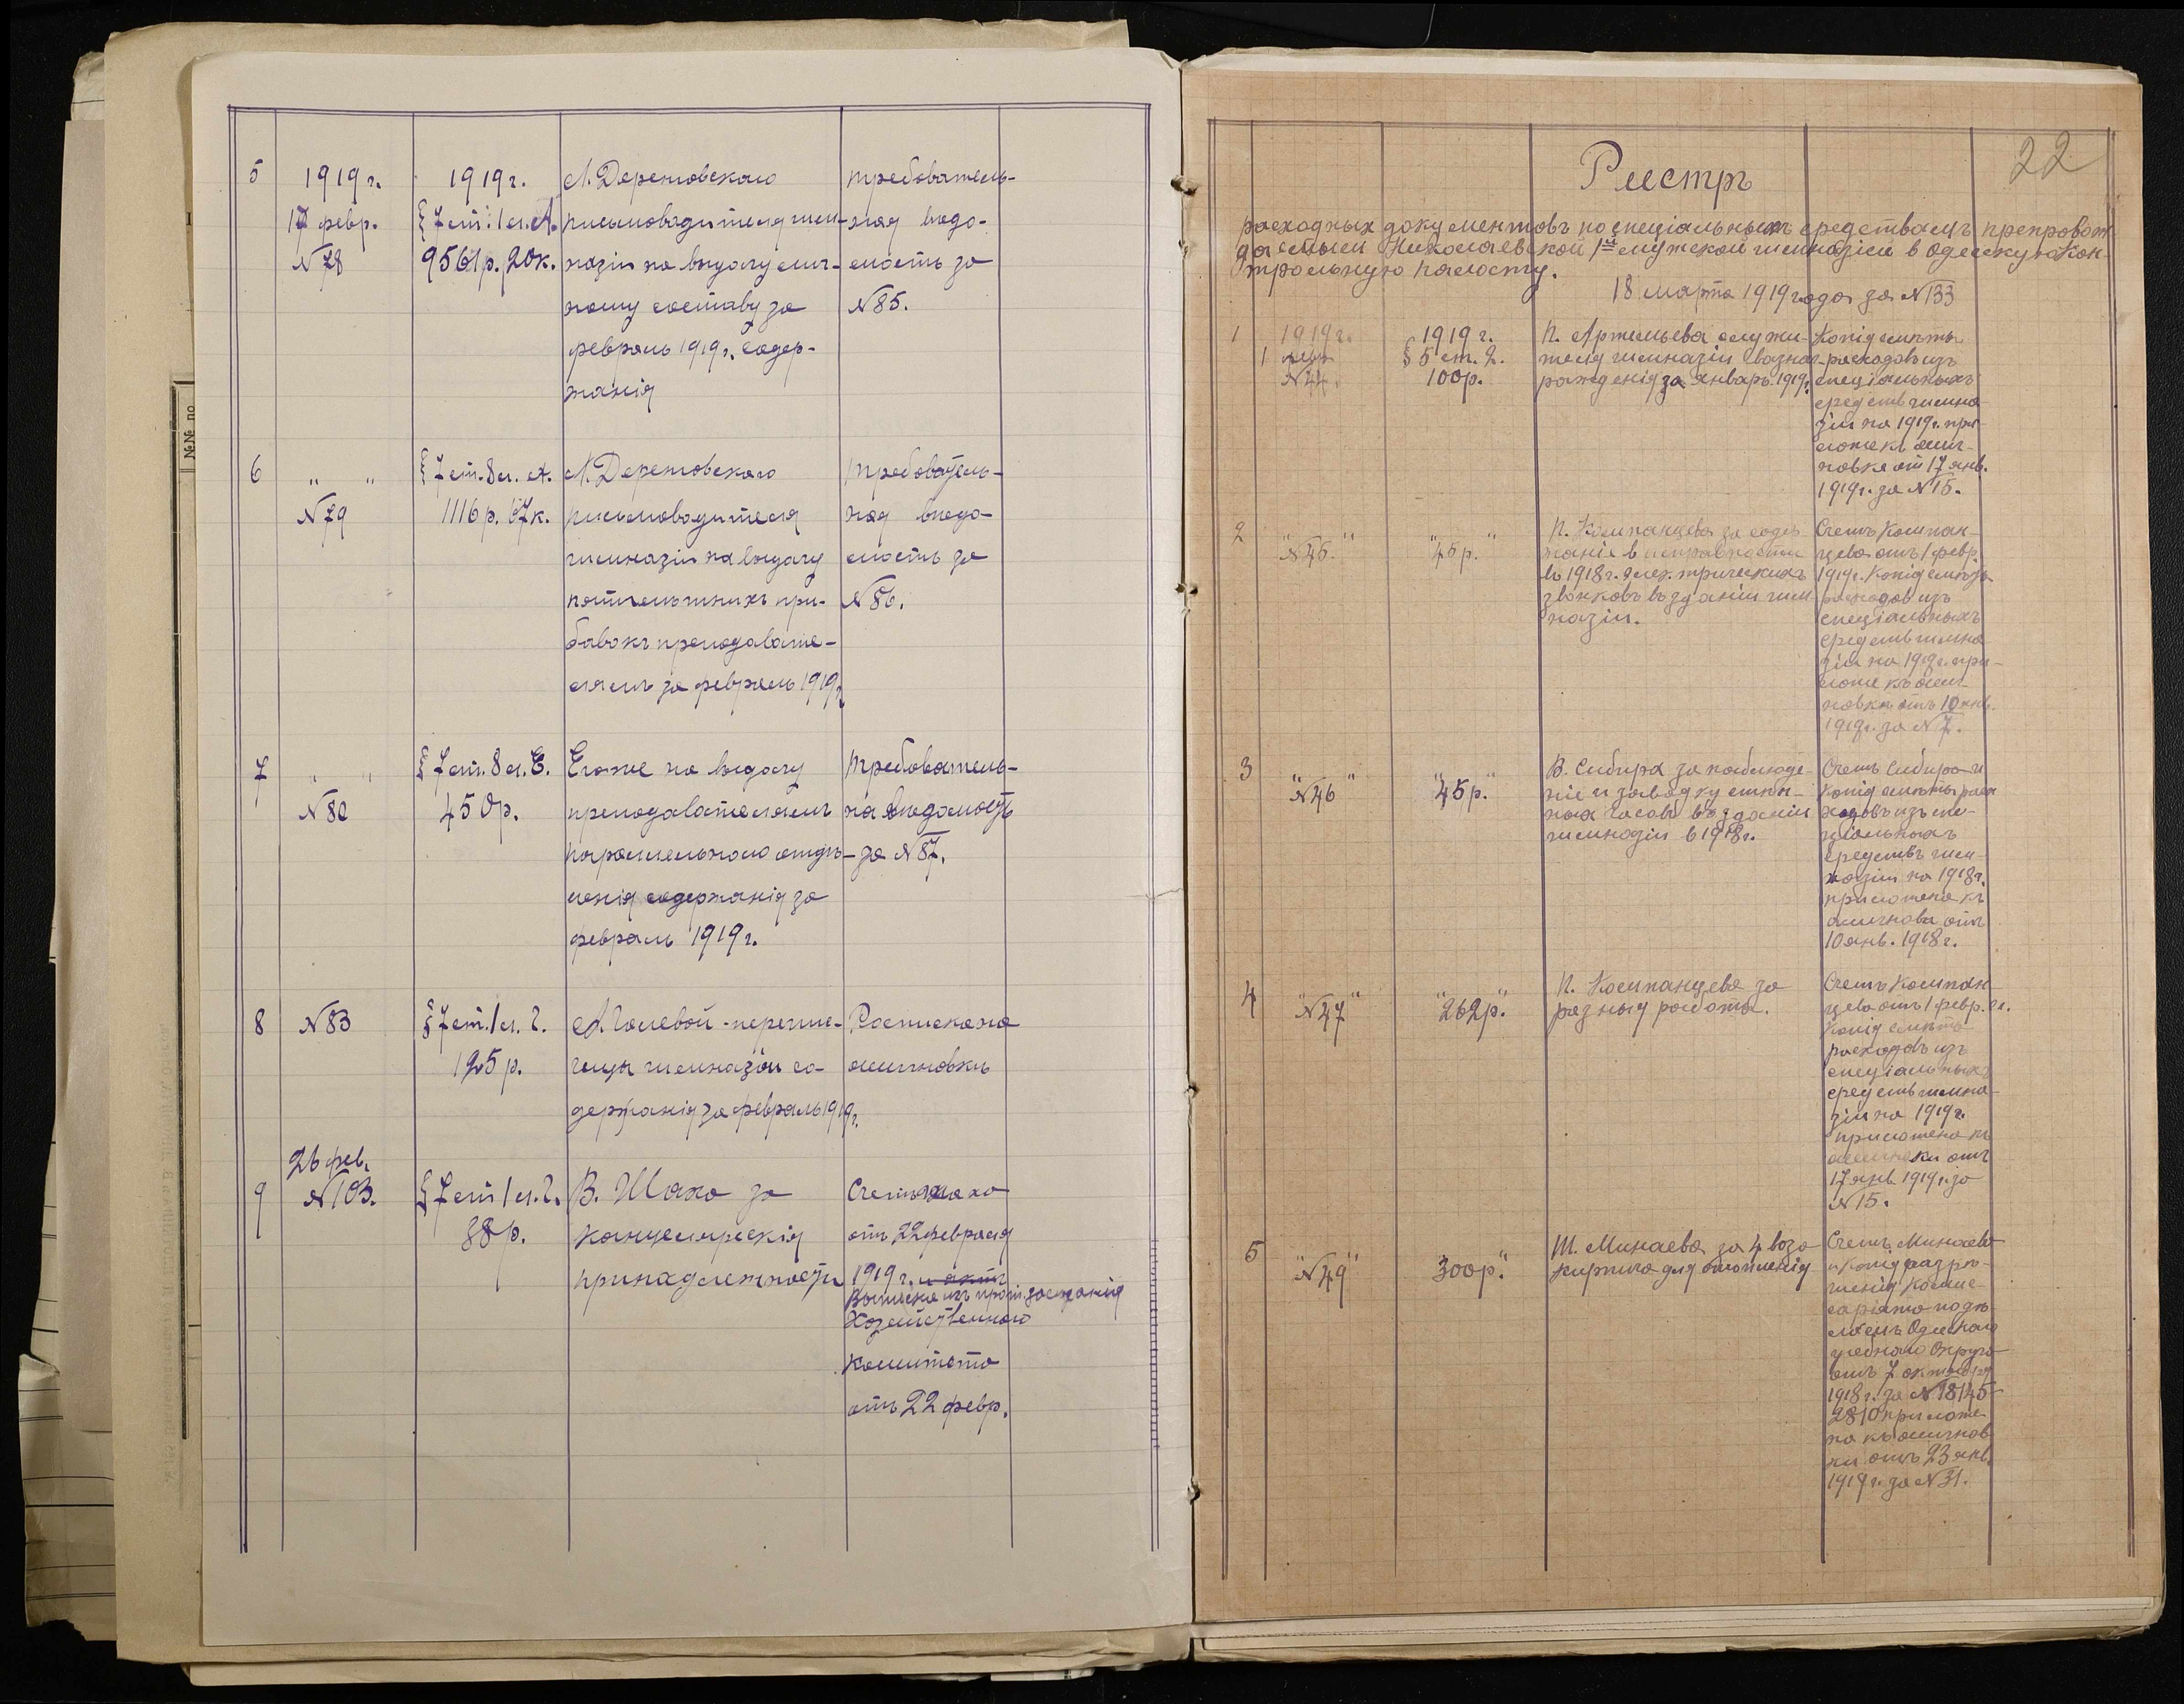 5
1919 г.
17 февр.
№ 78
1919 г.
§ 7 ст. 1 л. А.
9561 р. 20 к.
письмоводителя гим-
назіи на выдачу лич-
ному составу за
февраль 1919 г. содер-
жанія
требователь-
ная вѣдо-
мость за
№ 85.
6
" "
№ 79
§ 7 ст. 8 л. А.
1116 р. 67 к.
письмоводителя
гимназіи на выдачу
пятилѣтнихъ при-
бавокъ преподавате-
лямъ за февраль 1919 г.
требователь-
ная вѣдо-
мость за
№ 86.
7
" "
№ 80
§ 7 ст. 8 л. Е.
450 р.
Его же на выдачу
преподавателямъ
параллельнаго отдѣ-
ленія содержанія за
февраль 1919 г.
Требователь-
на вѣдомость
за № 87.
8
№ 83
§ 7 ст. 1 л. 2.
125 р.
А. Голевой - перепис-
чицы гимназіи со-
держанія за февраль 1919 г.
Росписка на
ассигновкѣ
9
26 фев.
№ 103.
§ 7 ст 1 л. 2.
88 р.
В. Шахо за
канцелярскія
принадлежности
Счетъ Шахо
отъ 22 февраля
1919 г.
Выписка изъ прот. засѣданія
Хозяйственнаго
комитета
отъ 22 февр.
22
Реестръ
расходныхъ документовъ по спеціальнымъ средствамъ препровож-
даемый Николаевской 1ой мужской гимназіей в Одесскую Кон-
трольную палату.
18 марта 1919 года за № 133
1
1919 г.
1 февр
№ 44.
1919 г.
§ 5 ст. 2.
100 р.
П. Артемьева служи-
теля гимназіи вознаг-
ражденія за январь 1919 г.
Копія смѣты
расходовъ изъ
спеціальныхъ
средств гимна-
зіи на 1919 г. при-
ложе къ ассиг-
новке от 17 янв.
1919 г. за № 15.
2
"№ 45."
"45 р."
П. Компанцева за содер-
жаніе в исправности
въ 1918 г. электрическихъ
звонковъ въ зданіи гим-
назіи.
Счетъ Компан-
цева отъ 1 февр.
1919 г. Копія смѣты
расходов изъ
спеціальныхъ
средств гимна-
зіи на 1919 г. при-
ложе къ ассиг-
новкѣ отъ 10 янв.
1919 г. за № 7.
3
"№ 46"
"45 р."
В. Сибира за наблюде-
ніе и заводку стѣн-
ных часовъ въ зданіи
гимназіи в 1918 г.
Счетъ Сибира и
копія смѣты расх
ходовъ изъ спе-
ціальныхъ
средствъ гим-
назіи на 1918 г.
приложена къ
ассигновк отъ
10 янв. 1918 г.
4
"№ 47"
"262 р."
П. Компанцева за
разныя работы.
Счетъ Компан
цева отъ 1 февр. 
Копія смѣты
расходовъ изъ
спеціальныхъ
средствъ гимна-
зіи на 1919 г.
приложена къ
ассигновки отъ
17 янв. 1919 г. за
№ 15.
5
"№ 49"
"300 р."
Ш. Минаева за 4 воза
кирпича для отопленія
Счетъ Минаева
и копія разрѣ-
шенія Комис-
саріата по дѣ-
ламъ Одесскаго
учебнаго Округа
отъ 7 октября
1918 г. за № 18145-
2810 приложе-
на къ ассигнов-
ки отъ 23 янв.
1919 г. за № 31.